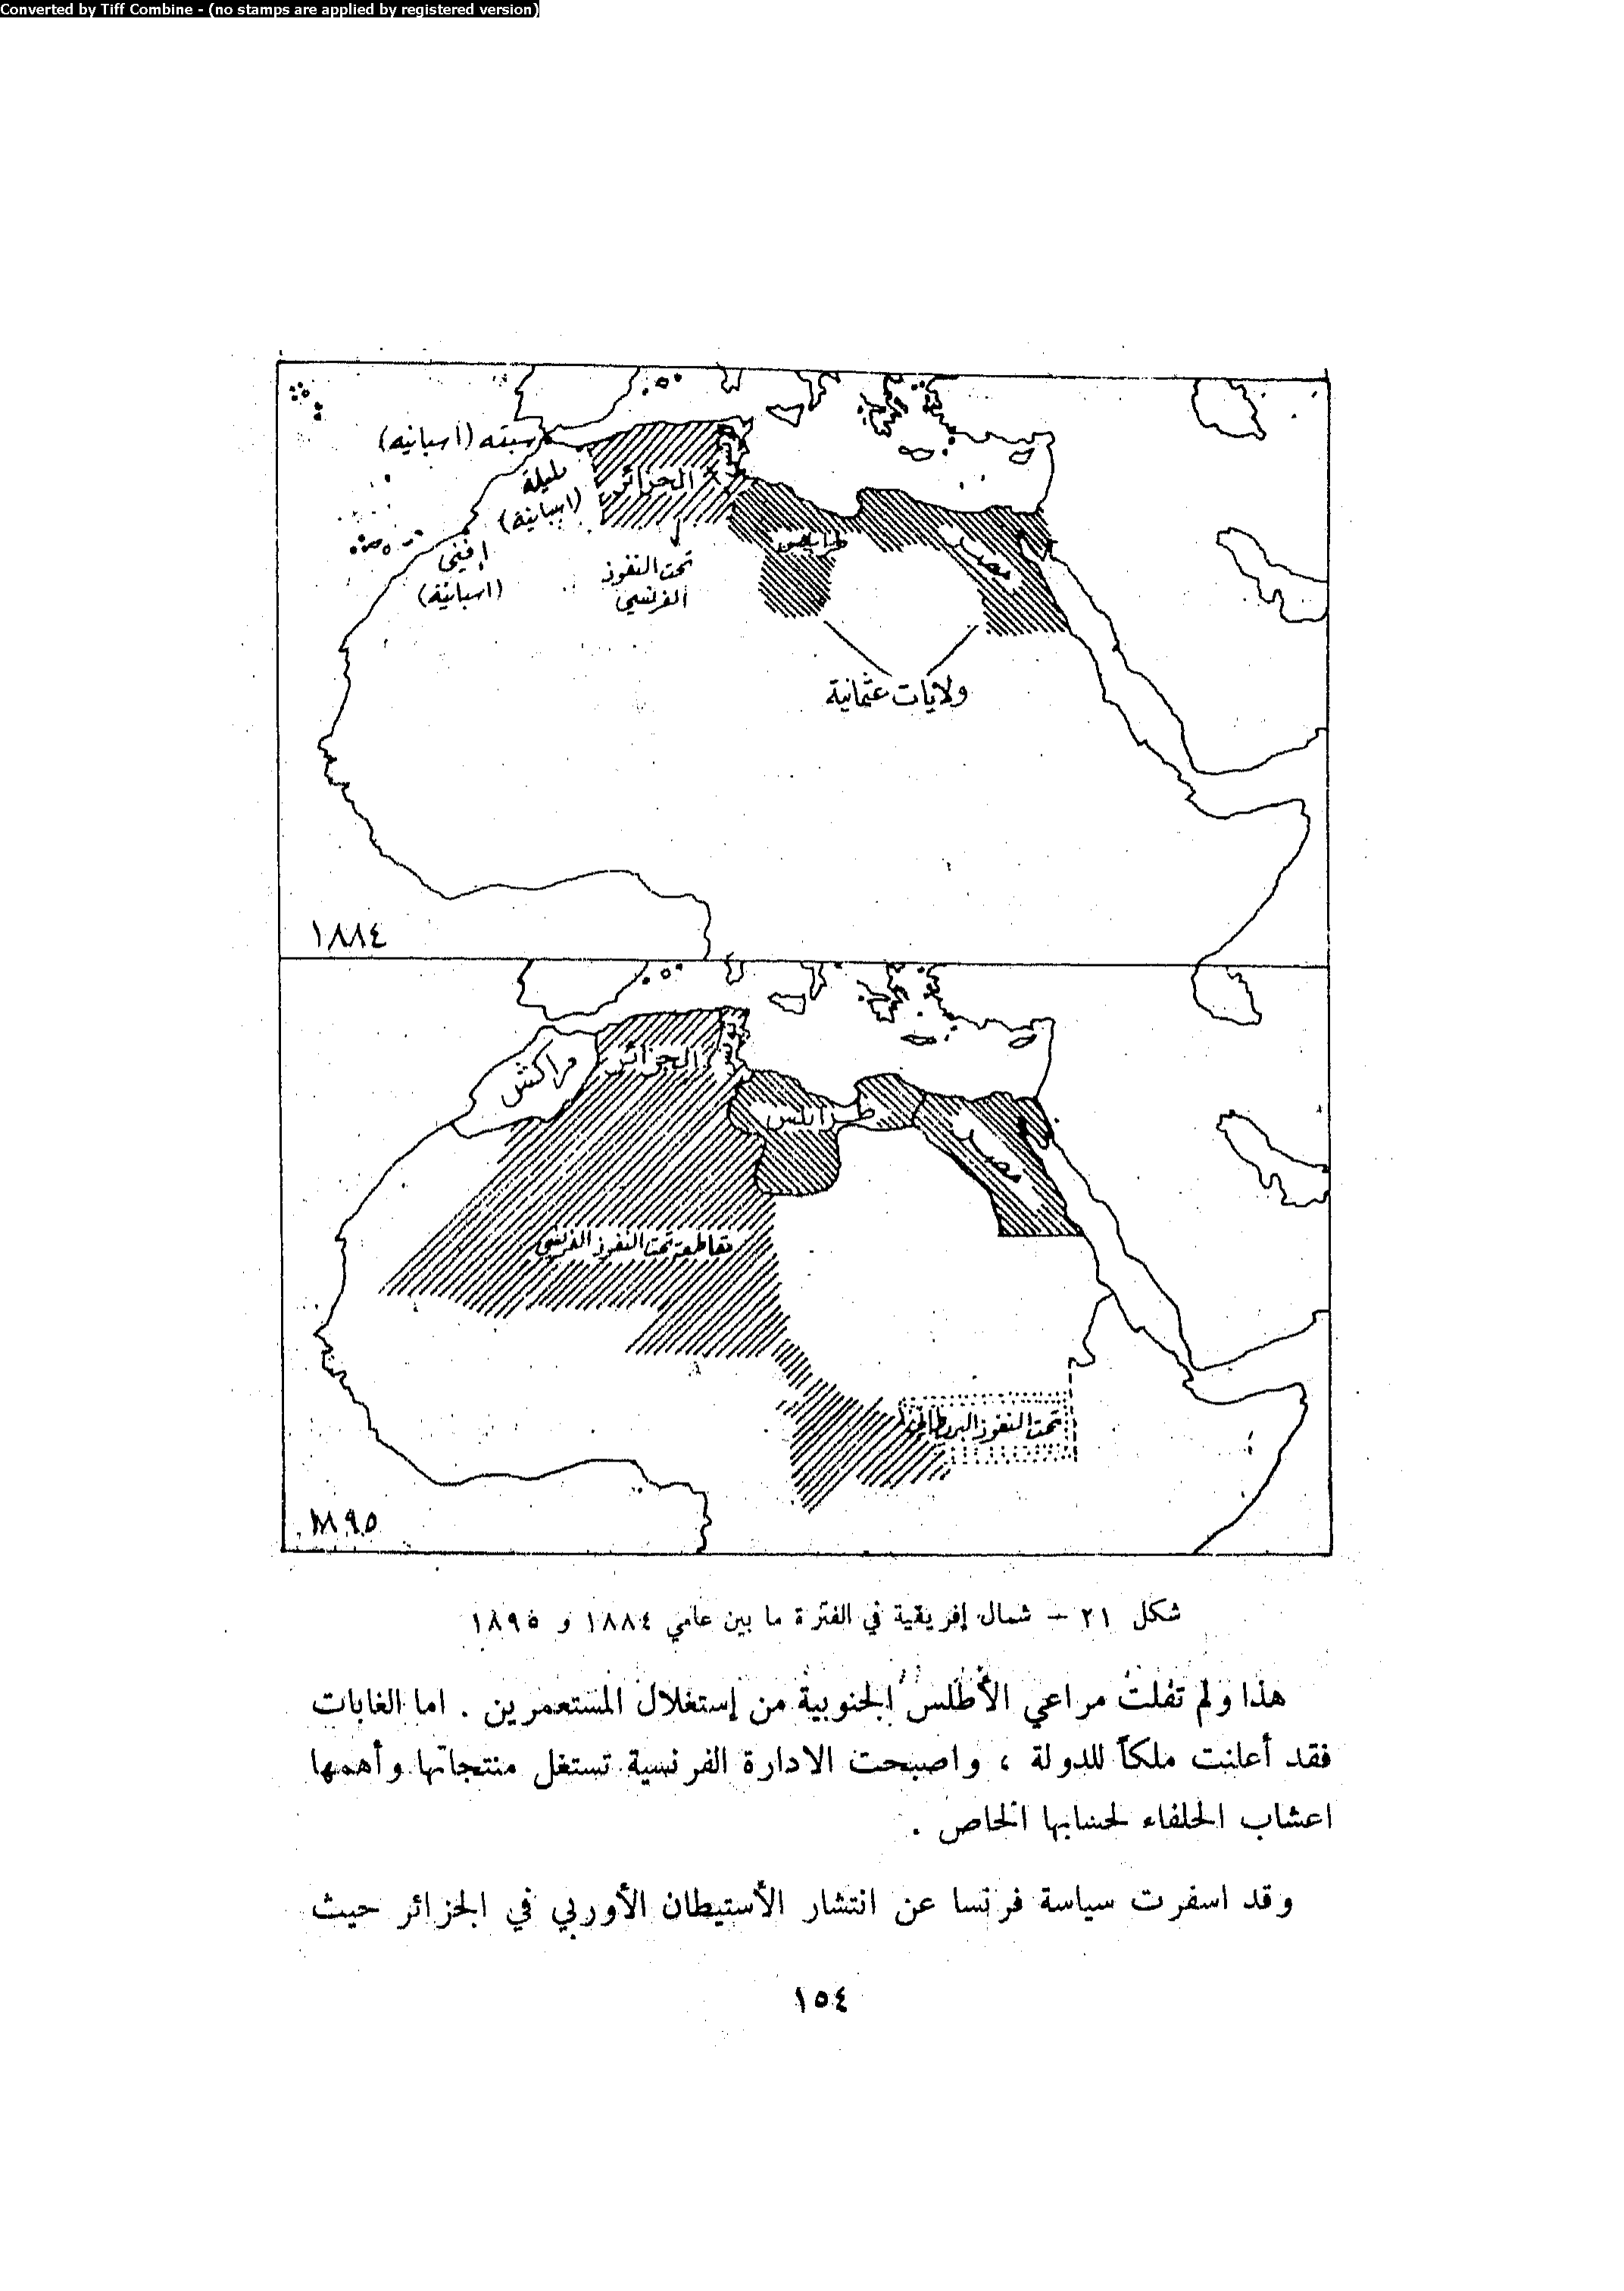 Converted by Tiff Combine - (no stamps are applied by registered version)
سبته (اسبانيه)
مليلة
(اسبانية)
الجزائر
تحت النفوذ
الفرنسي
إفني
(اسبانية)
طرابلس
مصر
ولايات عثمانية
١٨٨٤
مراكش
الجزائر
طرابلس
مصر
تحت النفوذ الفرنسي
تحت النفوذ البريطاني
١٨٩٥
شكل ٢١ - شمال إفريقية في الفترة ما بين عامي ١٨٨٤ و ١٨٩٥
هذا ولم تفلت مراعي الأطلس الجنوبية من إستغلال المستعمرين . اما الغابات
فقد أعلنت ملكاً للدولة ، واصبحت الادارة الفرنسية تستغل منتجاتها وأهمها
اعشاب الحلفاء لحسابها الخاص .
وقد اسفرت سياسة فرنسا عن انتشار الأستيطان الأوربي في الجزائر حيث
١٥٤